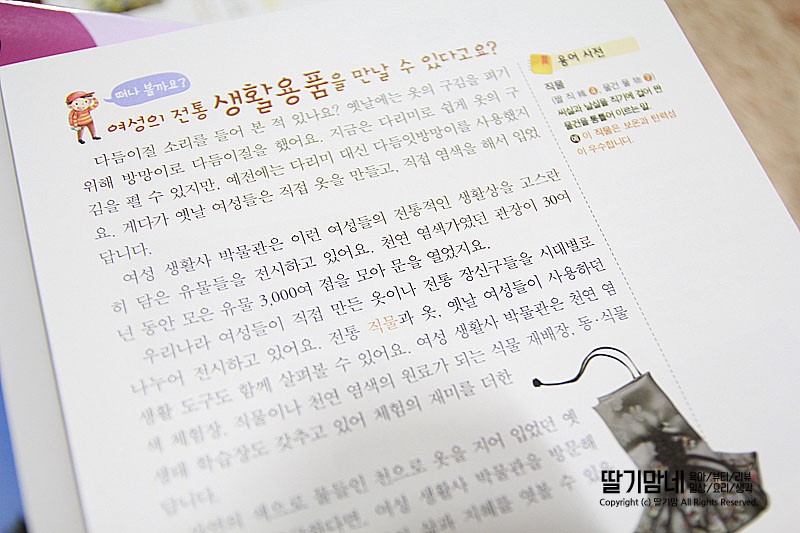 떠나 볼까요?
여성의 전통 생활용품을 만날 수 있다고요?
다듬이질 소리를 들어 본 적 있나요? 옛날에는 옷의 구김을 펴기
위해 방망이로 다듬이질을 했어요. 지금은 다리미로 쉽게 옷의 구
김을 펼 수 있지만, 예전에는 다리미 대신 다듬잇방망이를 사용했지
요. 게다가 옛날 여성들은 직접 옷을 만들고, 직접 염색을 해서 입었
답니다.
여성 생활사 박물관은 이런 여성들의 전통적인 생활상을 고스란
히 담은 유물들을 전시하고 있어요. 천연 염색가였던 관장이 30여
년 동안 모은 유물 3,000여 점을 모아 문을 열었지요.
우리나라 여성들이 직접 만든 옷이나 전통 장신구들을 시대별로
나누어 전시하고 있어요. 전통 직물과 옷, 옛날 여성들이 사용하던
생활 도구도 함께 살펴볼 수 있어요. 여성 생활사 박물관은 천연 염
색 체험장, 직물이나 천연 염색의 원료가 되는 식물 재배장, 등·식물
생태 학습장도 갖추고 있어 체험의 재미를 더한
답니다.
자연의 색으로 물들인 천으로 옷을 지어 입었던 옛
여성 생활사 박물관을 방문해
삶과 지혜를 엿볼 수 있을
용어 사전
직물
씨실과 날실을 직기에 걸어 짠
물건을 통틀어 이르는 말
예 이 직물은 보온과 탄력성
이 우수합니다.
딸기맘네 육아/뷰티/리뷰
일상/요리/생각
Copyright (c) 딸기맘 All Rights Reserved.